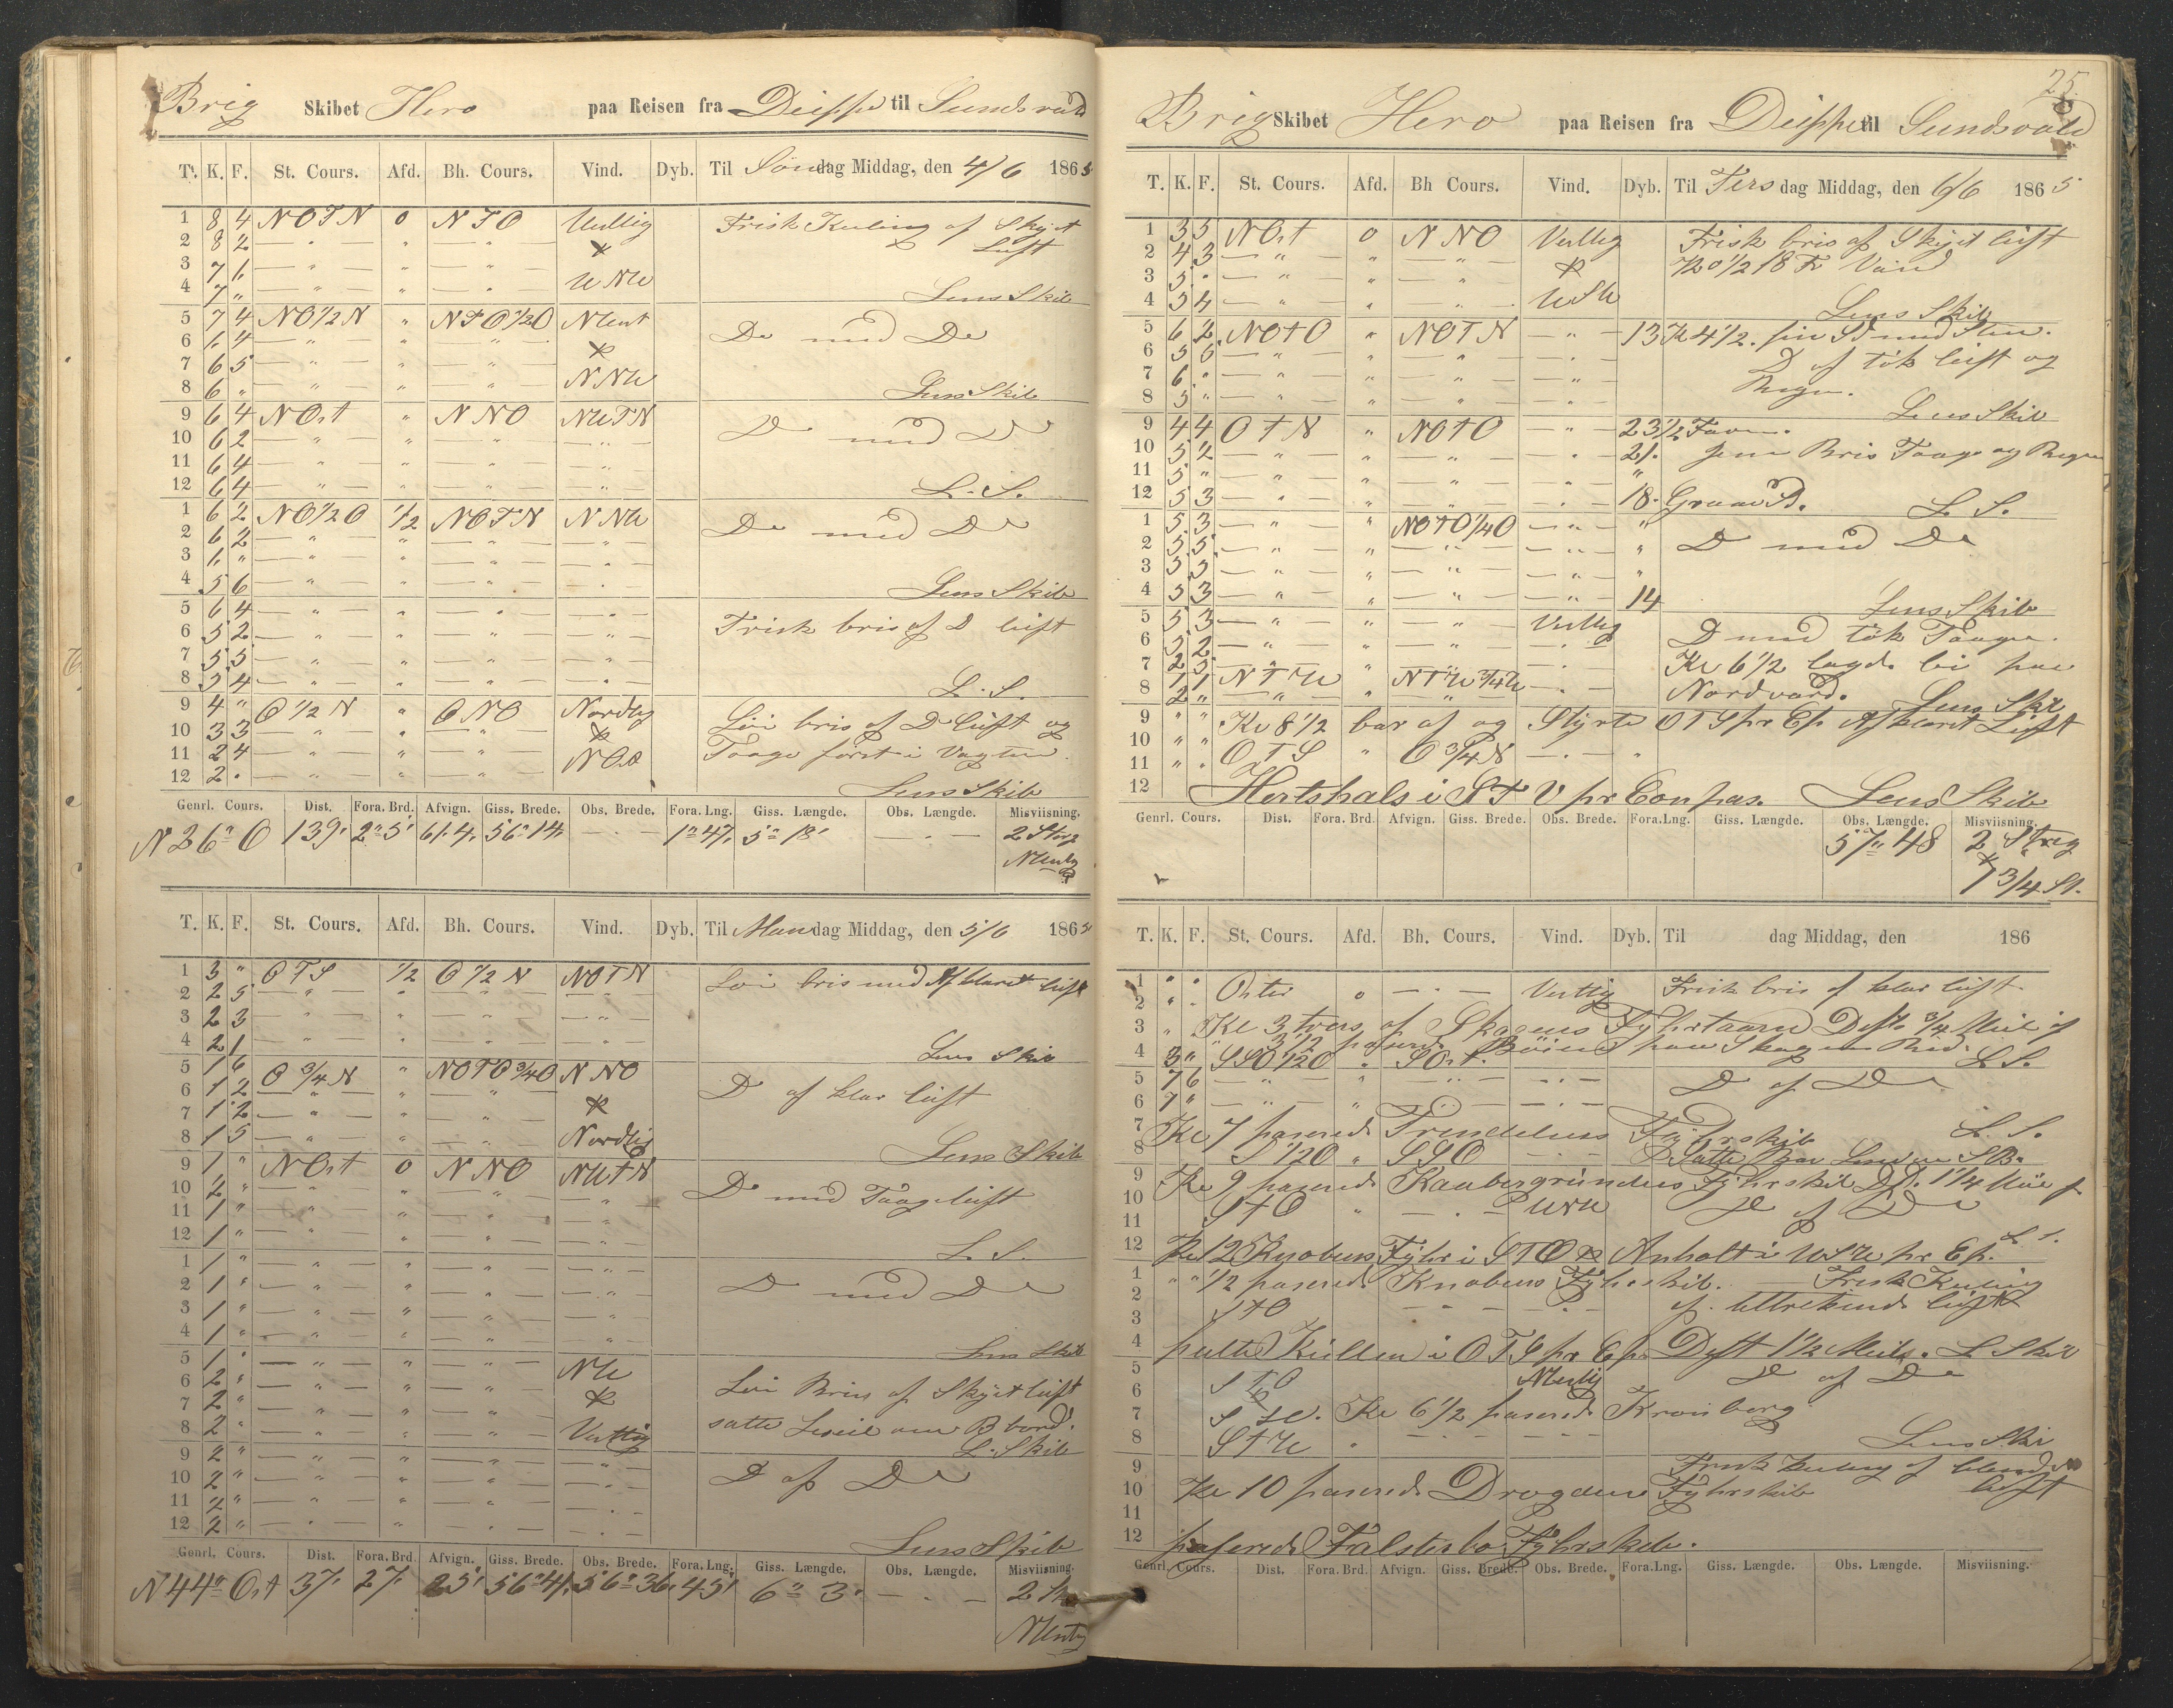 Brig Skibet Hero paa Reisen fra Dieppe til Sundsvald
T. K. F. St. Cours. Afd. Bh. Cours. Vind. Dyb. Til Søndag Middag, den 4/6 1865
1 8 4 NOTN 0 NTO Vestlig Frisk Kuling af Skyet
2 8 2 — " — " — " — & Luft
3 7 6 — " — " — " — WNW
4 7 " — " — " — " — Lens Skib
5 7 4 NO1/2N " NTO1/2O NWest Do med Do
6 6 4 — " — " — " — &
7 6 5 — " — " — " — NNW
8 6 " — " — " — " — Lens Skib
9 6 4 NOst " NNO NWTN Do med Do
10 6 2 — " — " — " — — " —
11 6 4 — " — " — " — — " —
12 6 4 — " — " — " — — " — L. S.
1 6 2 NO1/2O 1/2 NOTN NNW Do med Do
2 6 2 — " — " — " — — " —
3 6 " — " — " — " — — " —
4 5 6 — " — " — " — — " — Lens Skib
5 6 4 — " — " — " — — " — Frisk bris af D luft
6 5 2 — " — " — " — — " —
7 5 5 — " — " — " — — " —
8 5 4 — " — " — " — — " — L. S.
9 4 " O 1/2 N " ONO Nordlig Löi bris af D luft og
10 3 3 — " — " — " — & Taage först i Vagten.
11 2 4 — " — " — " — NOst
12 2 " — " — " — " — Lens Skib
Genrl. Cours. Dist. Fora. Brd. Afvign. Giss. Brede. Obs. Brede. Fora. Lng. Giss. Længde. Obs. Længde. Misviisning.
N 26° O 139' 2° 5' 61.4. 56° 14. — " — 1° 47. 5° 18' — " — 2 Streg
NWestlig
T. K. F. St. Cours. Afd. Bh. Cours. Vind. Dyb. Til Mandag Middag, den 5/6 1865
1 3 " OTS 1/2 O 1/2 N NOTN Löi bris med Afklaret luft
2 2 5 — " — " — " — — " —
3 2 3 — " — " — " — — " —
4 2 1 — " — " — " — — " — Lens Skib
5 1 6 O 3/4 N " NOTO3/4O NNO D af klar luft
6 1 2 — " — " — " —
7 1 2 — " — " — " — &
8 1 5 — " — " — " — Nordlig Lens Skib
9 1 " NOst 0 NNO NWTN D med Taageluft
10 2 " — " — " — " — — " —
11 1 " — " — " — " — — " —
12 1 " — " — " — " — — " — L. S.
1 1 " — " — " — " — — " — D med Do
2 1 " — " — " — " — — " —
3 1 " — " — " — " — — " —
4 1 " — " — " — " — — " — Lens Skib
5 1 " — " — " — " — NW Löi Bris af Skyet luft
6 2 " — " — " — " — &
7 2 " — " — " — " — satte Leseil om B bord.
8 2 " — " — " — " — Vestlig L. Skib
9 2 " — " — " — " — — " — D af Do
10 2 " — " — " — " — — " —
11 2 " — " — " — " — — " —
12 2 " — " — " — " — — " — Lens Skib
Genrl. Cours. Dist. Fora. Brd. Afvign. Giss. Brede. Obs. Brede. Fora. Lng. Giss. Længde. Obs. Længde. Misviisning.
N 44° Ost 37. 27. 25' 56° 41. 56° 36. 45' 6° 3' — " — 2 St
NWestlig
25.
Brig Skibet Hero paa Reisen fra Dieppe til Sundsvald
T. K. F. St. Cours. Afd. Bh Cours. Vind. Dyb. Til Tersdag Middag, den 6/6 1865
1 3 5 NOst 0 NNO Vestlig Frisk bris af Skyet luft
2 4 3 — " — " — " — & 1/2 18 Vand
3 5 " — " — " — " —
4 5 4 — " — " — " — WSW Lens Skib
5 6 2 NOtO " NOTN — " — 13 Kl 4 1/2. fin Sd med Sten.
6 5 6 — " — " — " — — " — D af tök luft og
7 6 " — " — " — " — — " — Regn.
8 5 " — " — " — " — — " — Lens Skib
9 4 4 OTN " NOtO — " — 23 1/2 Favn.
10 5 2 — " — " — " — — " — 21. Bris Taage og Regn
11 5 " — " — " — " — — " — "
12 5 3 — " — " — " — — " — 18. Graa Sd. L. S.
1 5 3 — " — " NOtO1/4O — " — " D med Do
2 5 5 — " — " — " — — " — "
3 5 5 — " — " — " — — " — "
4 5 3 — " — " — " — — " — 14 Lens Skib
5 5 3 — " — " — " — Vestlig D med tök Taage.
6 5 2 — " — " — " — — " — Kl 6 1/2 lagde bi paa
7 2 5 — " — " — " — — " — Nordvard.
8 1 1 NTW " NTW3/4W — " — Lens Skib
9 " " Kl 8 1/2 bar af og Styrte OTS pr Cp Afklaret Luft
10 " " OTS " O 3/4 N — " —
11 " "
12 Hertshals i STV pr Compas. Lens Skib
Genrl. Cours. Dist. Fora. Brd. Afvign. Giss. Brede. Obs. Brede. Fora. Lng. Giss. Længde. Obs. Længde. Misviisning.
57° 48 2 Streg
& 1 3/4 St.
T. K. F. St. Cours. Afd. Bh. Cours. Vind. Dyb. Til dag Middag, den 186
1 " " Oster 0 — " — Vestlig Frisk bris af klar luft
2 " "
3 " Kl 3 tvers af Skagens Fyhrtaarn Dist 3/4 Miil af
3 1/2 paserede Böien paa Skagen Rev.
4 3 " SSO1/2O " SOst. L. S.
5 7 6 — " — " — " — — " — D af Do
6 7 " — " — " — " — — " —
7 Kl 7 paserede Trindelens Fyhrskib L. S.
8 S 1/2O " SSO — " — Satte
9 Kl 9 paserede Kaabergrundens Fyhrskib D. 1 1/4 Miil af
10 StO " — " — WNW D af Do
11 L. S.
12 Kl 12 Knobens Fyhr i STO & Anholt i WSW pr Cp.
1 " " 1/2 paserede Knobens Fyhrskib. — Frisk Kuling
2 StO — " — af tiltrekende luft
3
4 peilte Kullen i OTS pr Cps Dist 1 1/2 Miile. L Skib
5 STO NWestlig D af Do
6 &
7 S W. Kl 6 1/2 paserede Kronborg
8 StW " — " — Lens Skib
9 Frisk Kuling af
10 Kl 10 paserede Drogdens Fyhrskib luft
11
12 paserede Falsterbo Fyhrskib.
Genrl. Cours. Dist. Fora. Brd. Afvign. Giss. Brede. Obs. Brede. Fora. Lng. Giss. Længde. Obs. Længde. Misviisning.